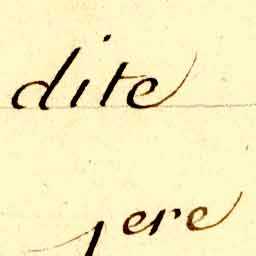 dite
ere